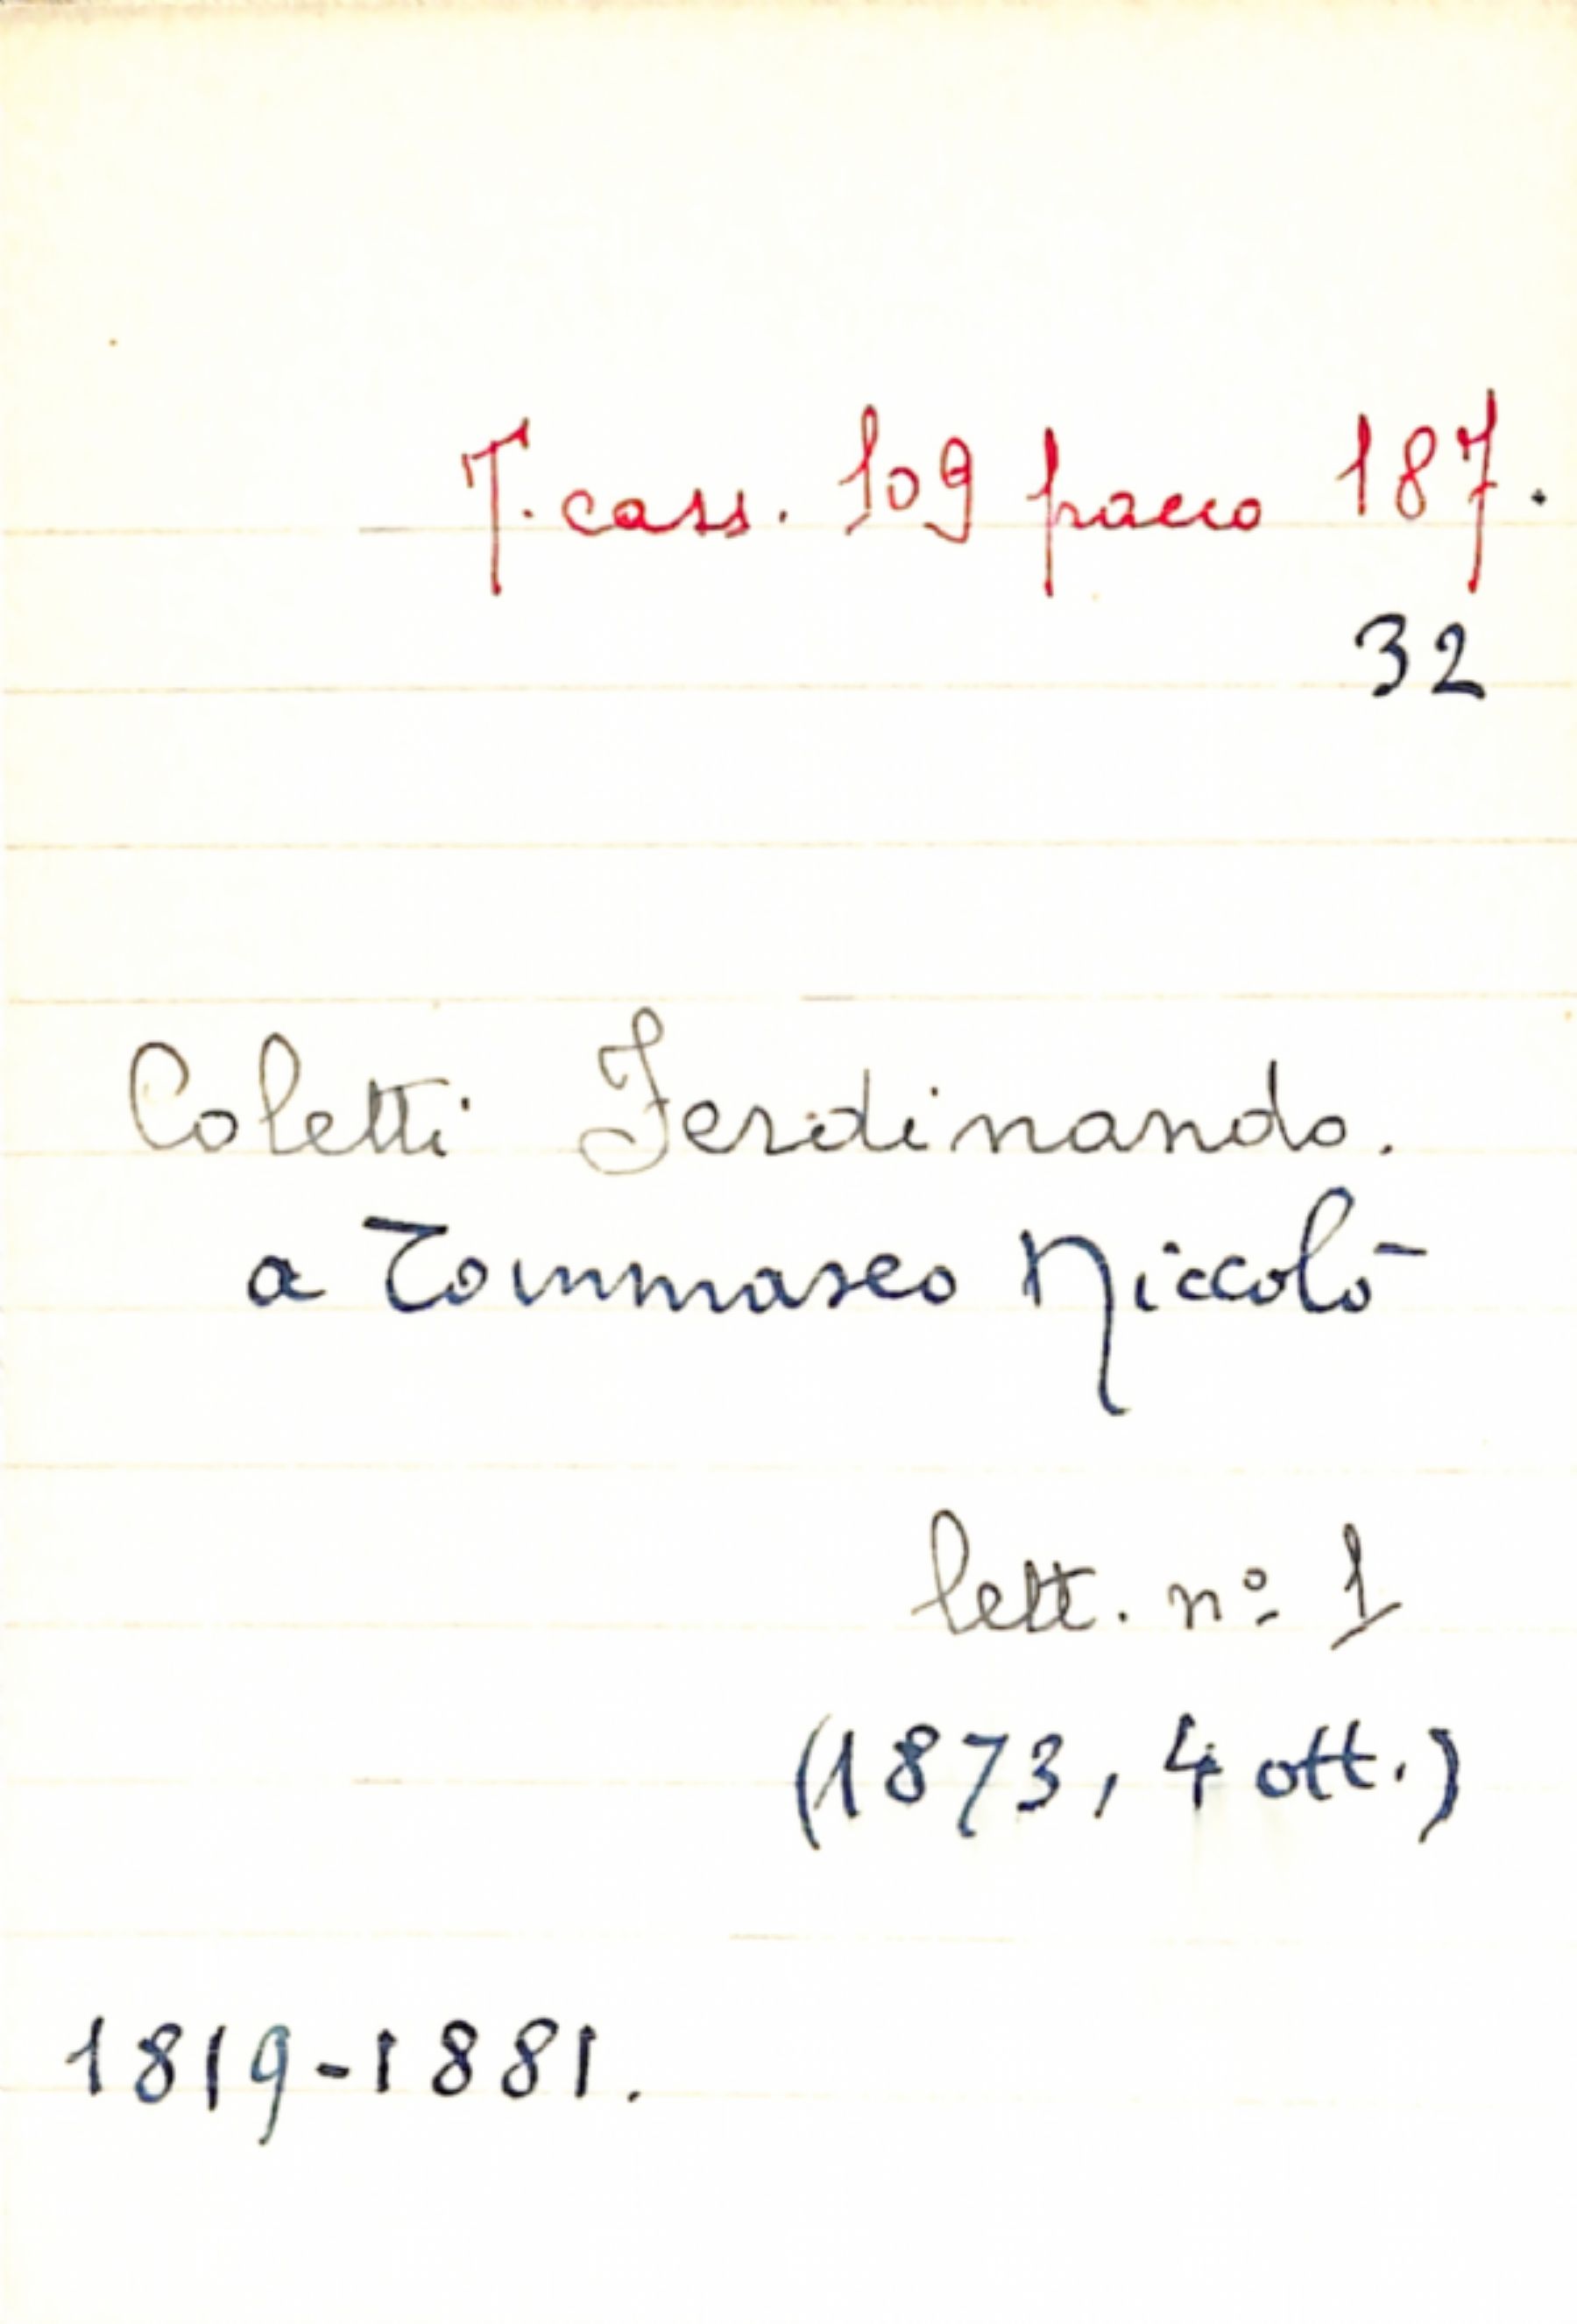 T. cass. 109 pacco 187.
32
Coletti Ferdinando.
a Tommaseo Niccolò
lett. nº 1
(1873, 4 ott.)
1819-1881.